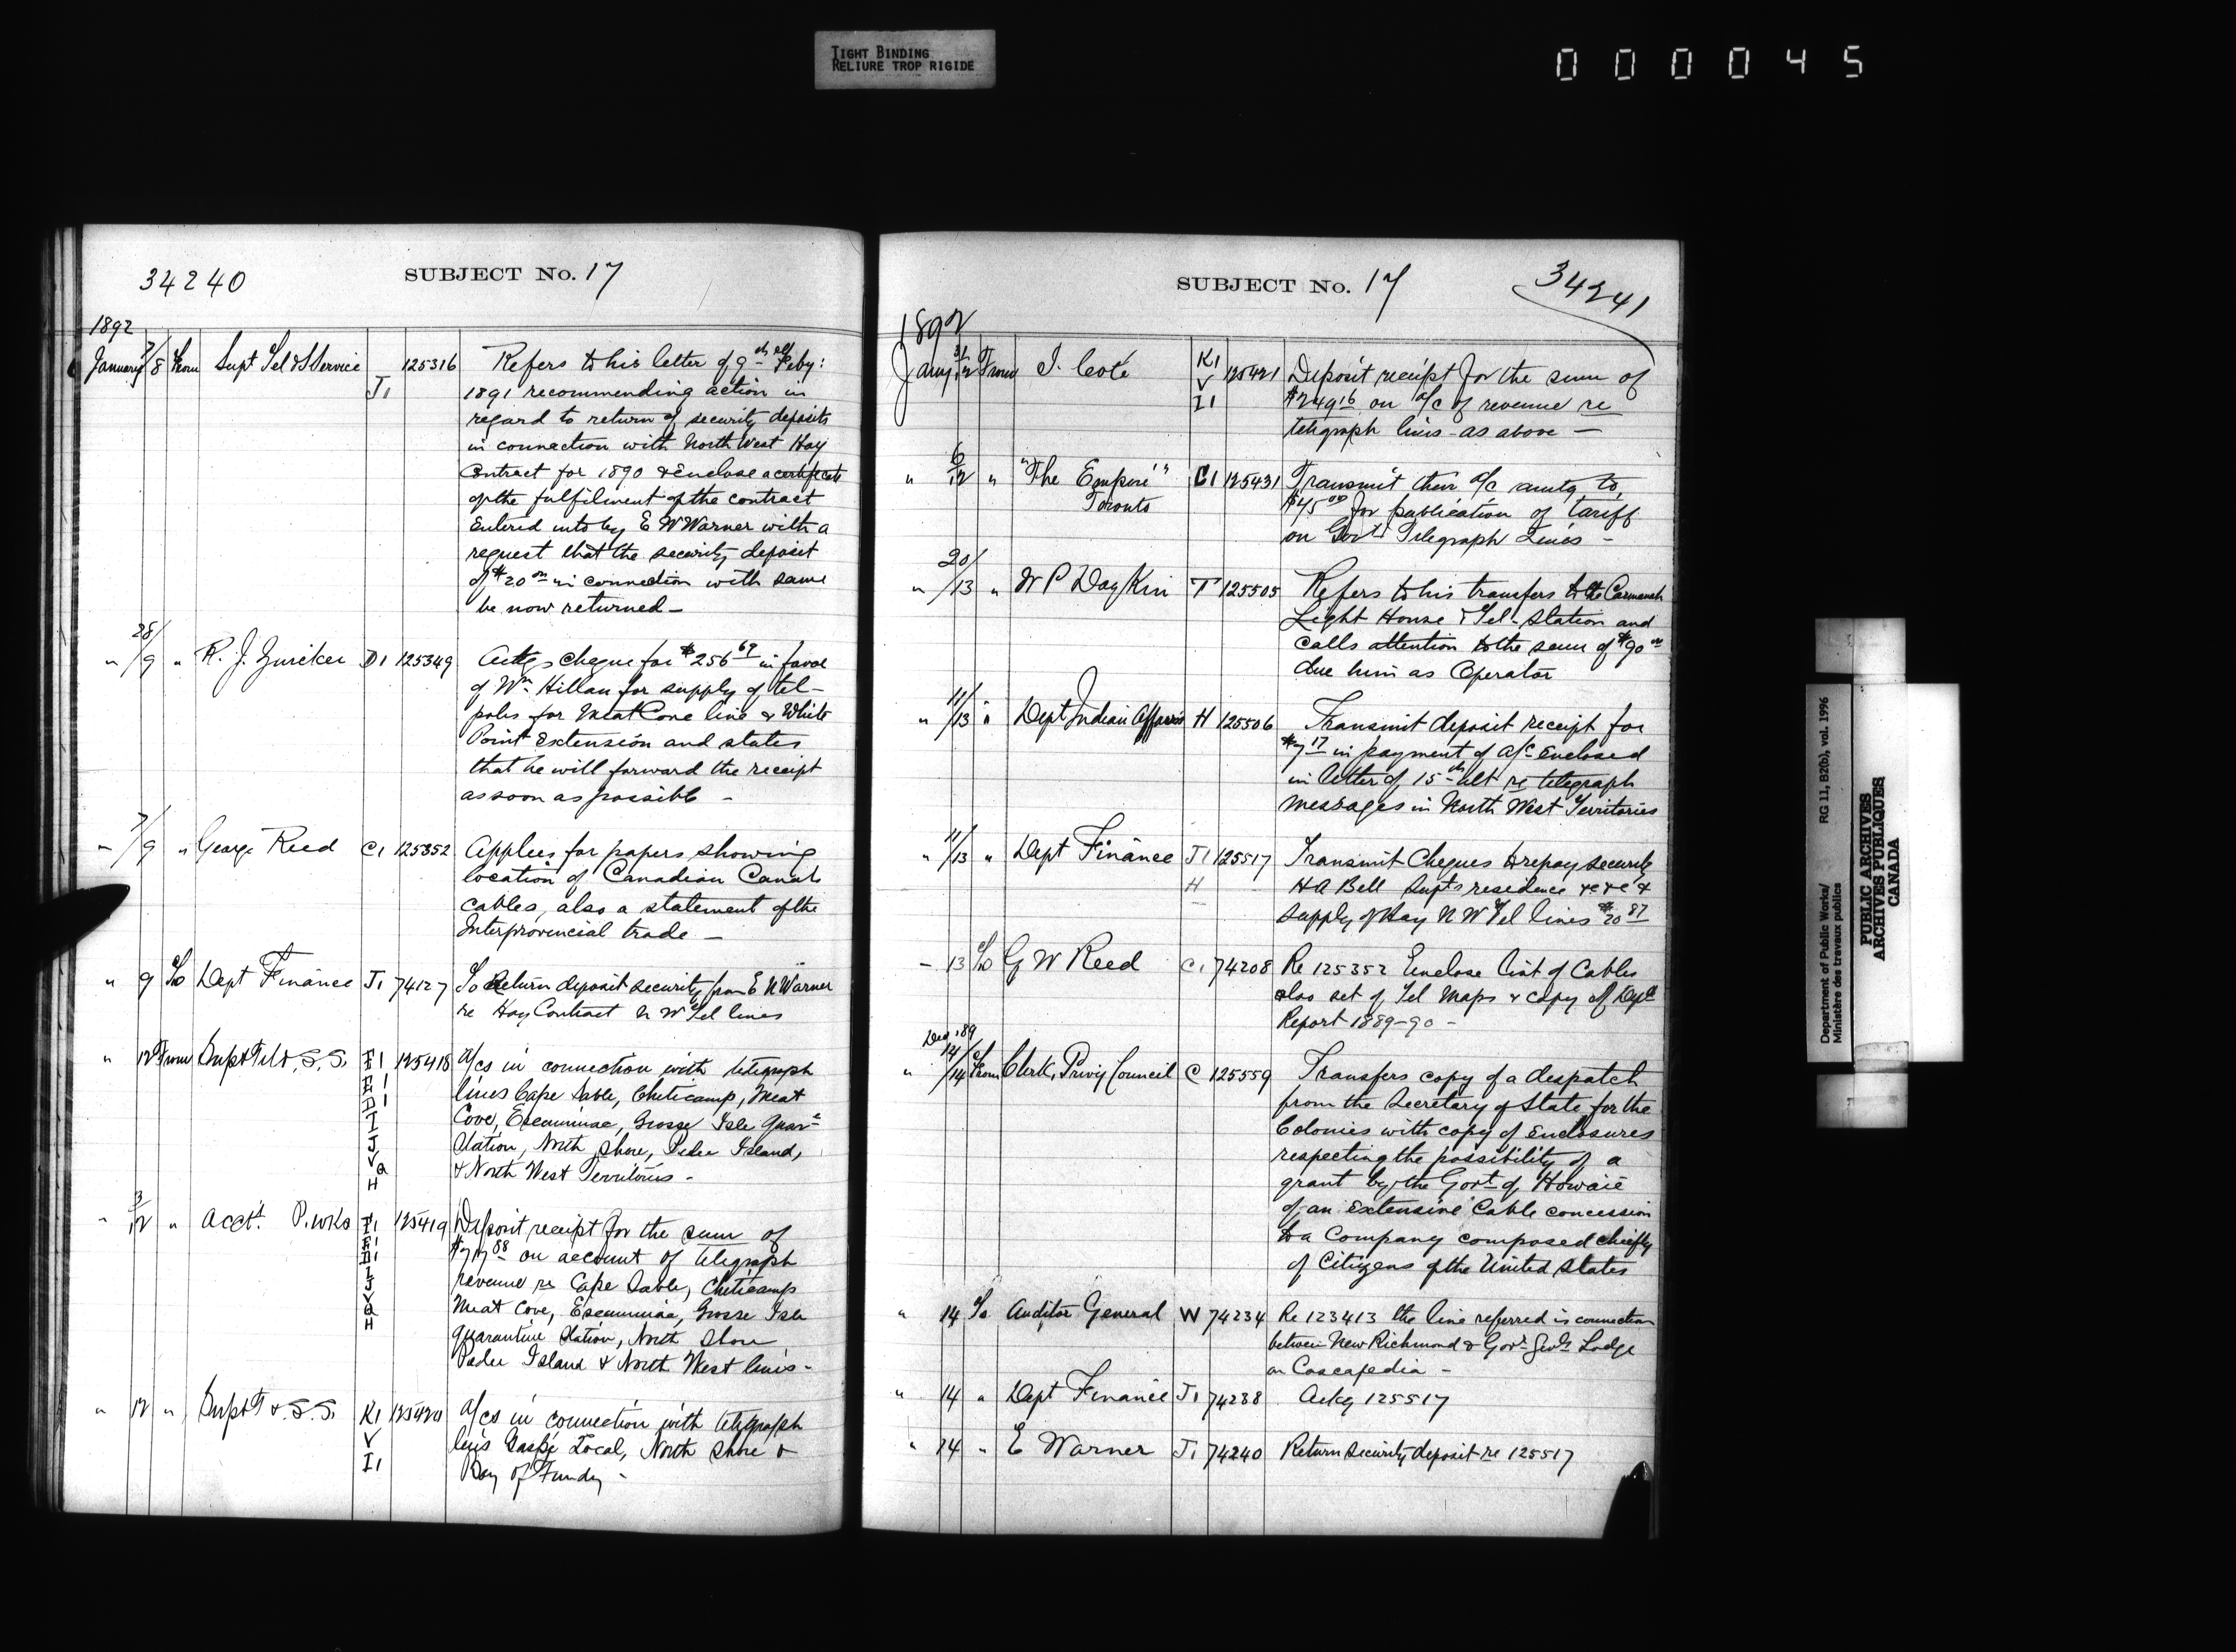 TIGHT BINDING
RELIURE TROP RIGIDE
000045
34240
SUBJECT No. 17
1892
January 7/8 From Supt Tel & S Service J1 125316 Refers to his letter of 9th Feby:
1891 recommending action in
regard to return of security deposits
in connection with North West Hay
Contract for 1890 & Enclose a certificate
of the fulfilment of the contract
Entered into by E W Warner with a
request that the security deposit
of $20 00 in connection with same
be now returned —
" 28/9 " R. J. D1 125349 Ackgs cheque for $256 69 in favor
of Wm Hillan for supply of tel-
poles for Meat Cove line & White
Point Extension and states
that he will forward the receipt
as soon as possible —
" 7/9 " George Reed C1 125352 Applies for papers showing
location of Canadian Canals
cables, also a statement of the
Interprovincial trade —
" 9 To Dept Finance J1 74127 To Return deposit security from E W Warner
re Hay Contract N W Tel lines
" 12 From Supt Tel & S. S. F1 125418 a/cs in connection with telegraph
E1 lines Cape Sable, Cheticamp, Meat
D1
I Cove, Escuminac, Grosse Isle Quar=
J Station, North Shore, Pelee Island,
V
Q & North West Territories -
H
" 3/12 " Acct. P. Wks F1 125419 Deposit receipt for the sum of
E1
D1 88 on account of telegraph
I
J revenue re Cape Sable, Cheticamp
V
Q Meat Cove, Escuminac, Grosse Isle
H
Quarantine Station, North Shore
Pelee Island & North West lines -
" 12 " Supt T & S. S. K1 125420 a/cs in connection with telegraph
V lines Gaspé Local, North Shore &
I1 Bay of Fundy -
SUBJECT No. 17
34241
1892
Jany 12 From J. Coté K1 125421 Deposit receipt for the sum of
V
I1 $249 16 on a/c of revenue re
telegraph lines - as above —
" 6/12 " "The Empire" C1 125431 Transmit their a/c amtg to
Toronto $45 00 for publication of tariff
on Govt Telegraph Lines -
" 20/13 " W P Daykin T 125505 Refers to his transfers to the Carmanah
Light House & Tel- Station and
calls attention to the sum of $90 00
due him as Operator
" 11/13 " Dept Indian Affairs H 125506 Transmit deposit receipt for
$7 17 in payment of a/c Enclosed
in letter of 15th ult re telegraph
messages in North West Territories
" 11/13 " Dept Finance J1 125517 Transmit Cheques to repay security
H H A Bell Supts residence &c &c &
supply of Hay N W Tel lines $20 87
" 13 To G W Reed C1 74208 Re 125352 Enclose list of Cables
also set of Tel Maps & copy of Dept
Report 1889-90 -
Dec '89
" 14 From Clerk, Privy Council C 125559 Transfers copy of a despatch
from the Secretary of State for the
Colonies with copy of Enclosures
respecting the possibility of a
grant by the Govt of Howaii
of an Extensive Cable concession
to a Company composed chiefly
of Citizens of the United States
" 14 To Auditor General W 74234 Re 123413 the line referred is connection
between New Richmond & Govr Genls Lodge
on Cascapedia -
" 14 " Dept Finance J1 74238 Ackg 125517
" 14 " E Warner J1 74240 Return Security deposit re 125517
Department of Public Works/ RG 11, B2(b), vol. 1996
Ministère des travaux publics
PUBLIC ARCHIVES
ARCHIVES PUBLIQUES
CANADA